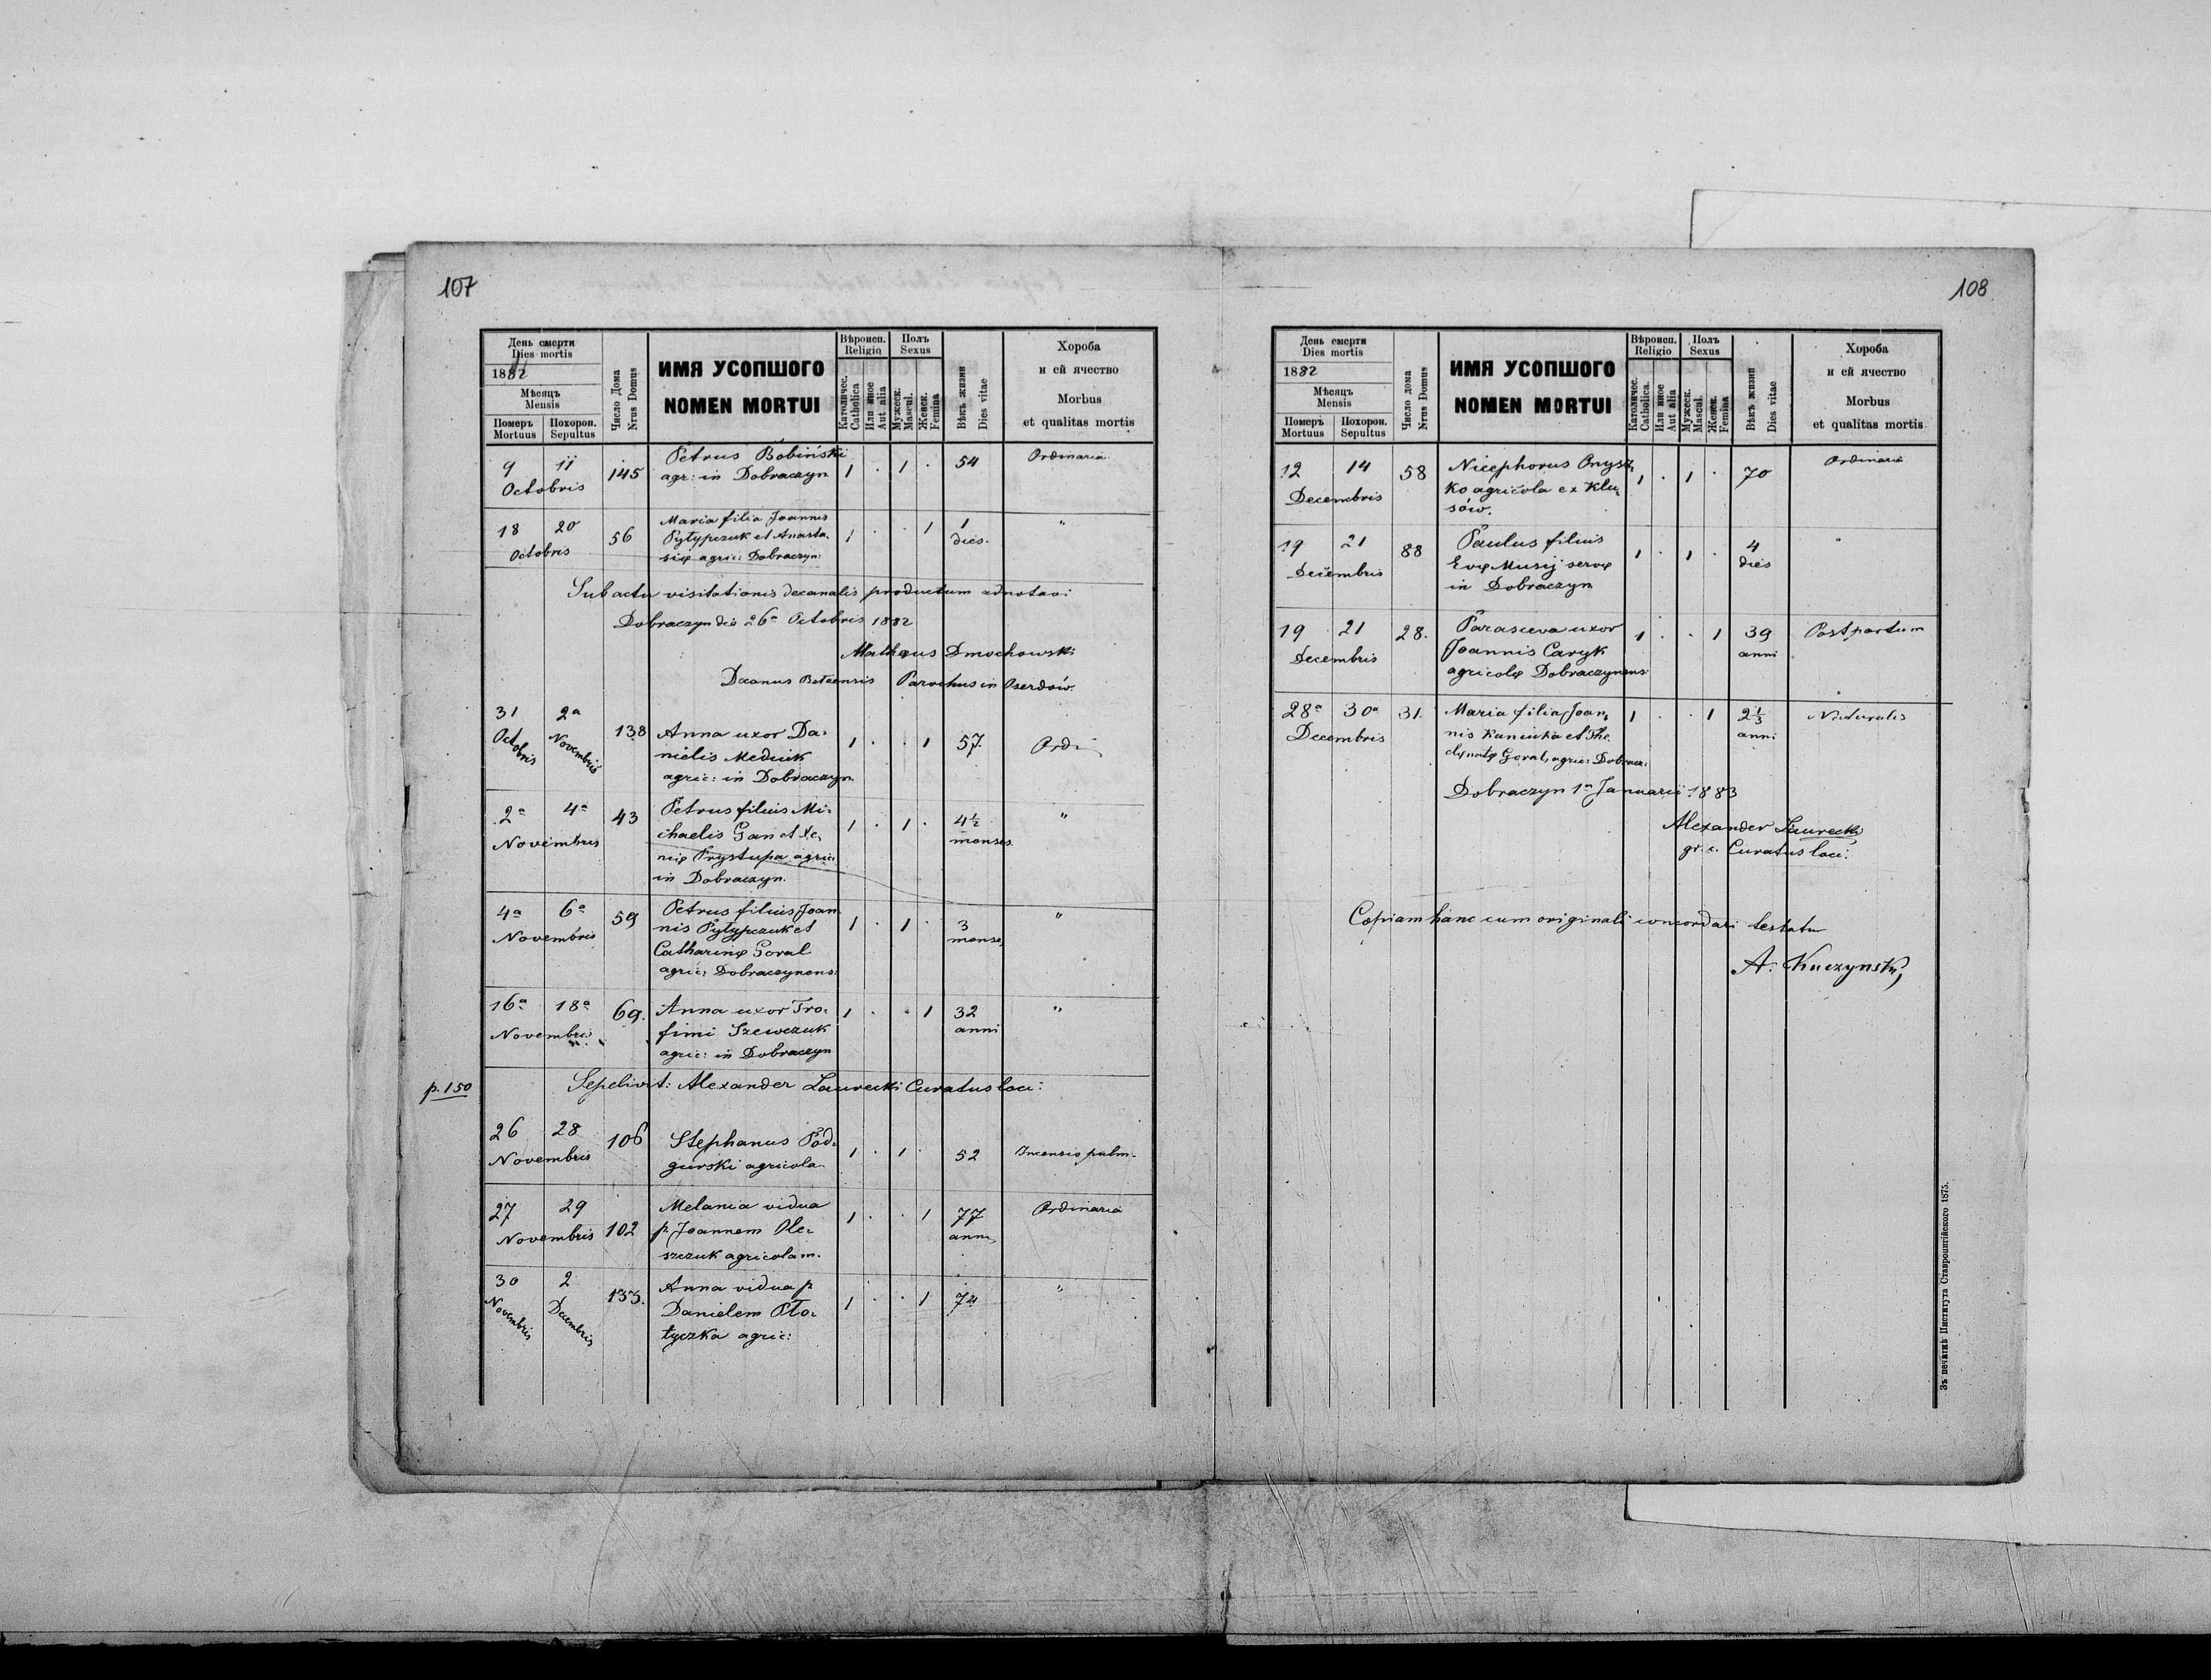 107
День смерти
Dies mortis
1882
Мѣсяць
Mensis
Померъ Похорон.
Mortuus Sepultus
Число Дома
Nrus Domus
ИМЯ УСОПШОГО
NOMEN MORTUI
Вѣроисп.
Religio
Католичес.
Catholica
Или иное
Aut alia
Полъ
Sexus
Мужеск.
Mascul.
Женск.
Femina
Вѣкъ жизни
Dies vitae
Хороба
и ей ячество
Morbus
et qualitas mortis
9 11 145 Petrus Bobiński 1 . 1 . 54 Ordinaria
Octobris agr: in Dobraczyn
18 20 56 Maria filia Joannis 1 . . 1 1 "
Octobris Pyłypczuk et Anasta- dies.
siæ agric: Dobraczyn:
Sub actu visitationis decanalis productum adnotavi
Dobraczyn die 26a Octobris 1882
Mathæus Dmochowski
Decanus Bełzensis Parochus in Oserdów.
31 2a 138 Anna uxor Da- 1 . . 1 57. Ordi
Octobris Novembris nielis Meduik
agric: in Dobraczyn.
2a 4a 43 Petrus filius Mi- 1 . 1 . 4½ "
Novembris chaelis Gan et Xe- menses.
niæ Prystupa agric:
in Dobraczyn.
4a 6a 59 Petrus filius Joan- 1 . 1 . 3 "
Novembris nis Pyłypczuk et menses
Catharinæ Goral
agric: Dobraczynens:
16a 18a 69. Anna uxor Tro- 1 . . 1 32 "
Novembris fimi Szewczuk anni
agric: in Dobraczyn
p. 150
Sepelivit: Alexander Laurecki Curatus loci:
26 28 106 Stephanus Pod- 1 . 1 . 52 Incensio pulm.
Novembris gurski agricola
27 29 102 Melania vidua 1 . . 1 77 Ordinaria
Novembris p. Joannem Ole- anni
szczuk agricolam.
30 2 133. Anna vidua p 1 . . 1 74 "
Novembris Decembris Danielem Pło-
tyczka agric:
108
День смерти
Dies mortis
1882
Мѣсяцъ
Mensis
Померъ Похорон.
Mortuus Sepultus
Число дома
Nrus Domus
ИМЯ УСОПШОГО
NOMEN MORTUI
Вѣроисп.
Religio
Католичес.
Catholica.
Или иное
Aut alia
Полъ
Sexus
Мужеск.
Mascul.
Женск.
Femina
Вѣкъ жизни
Dies vitae
Хороба
и ей ячество
Morbus
et qualitas mortis
12 14 58 Nicephorus Onysz- 1 . 1 . 70 Ordinaria
Decembris ko agricola ex Klu-
sów.
19 21 88 Paulus filius 1 . 1 . 4 "
Decembris Evæ Musij servæ dies
in Dobraczyn
19 21 28. Parasceva uxor 1 . . 1 39 Post partum
Decembris Joannis Caryk anni
agricolæ Dobraczynens:
28a 30a 31. Maria filia Joan- 1 . . 1 2⅓ Naturalis
Decembris nis Kaniuka et The- anni
clæ natæ Goral, agric: Dobracz:
Dobraczyn 1a Januarii 1883
Alexander Laurecki
gr. c. Curatus loci.
Copiam hanc cum originali concordari testatur
A. Kuczynski
Зъ печатнѣ Института Ставропигійского 1875.